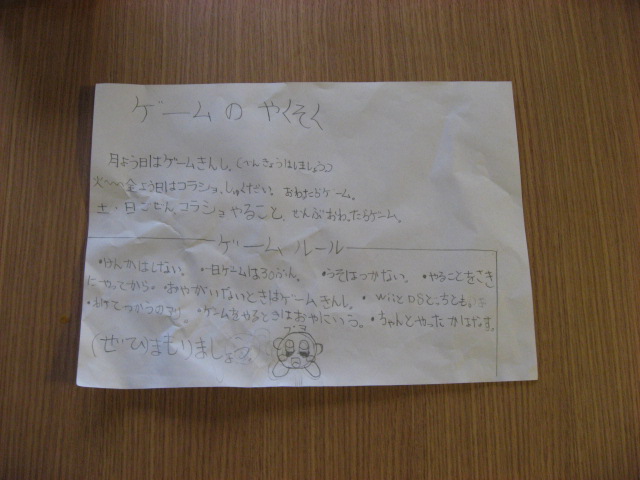 ゲームの やくそく
月よう日はゲームきんし。(べんきょうはしましょう。)
火〜金よう日はコラショ、しゅくだい、おわったらゲーム。
土・日ごぜん、コラショやること、ぜんぶおわったらゲーム。
ゲームルール
・けんかはしない。・一日ゲームは30ぷん。・うそはつかない。・やることをさき
にやってから・おやがいないときはゲームきんし。・WiiとDSどっちとも
・ゲームをやるときはおやにいう。・ちゃんとやったか
(ぜひまもりましょう